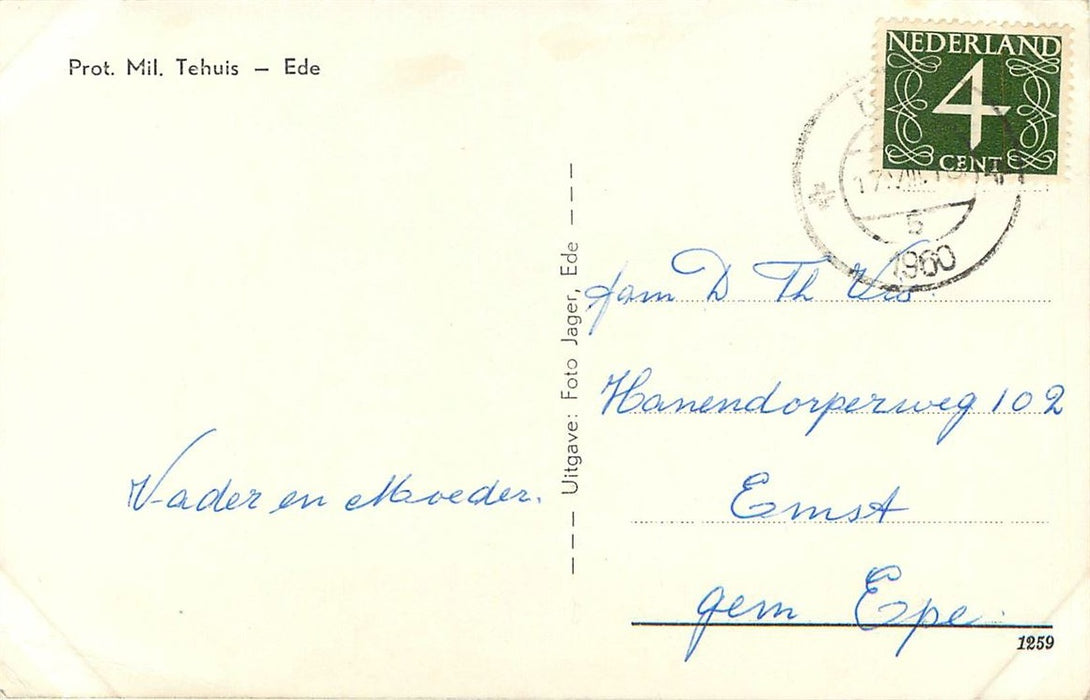 Prot. Mil. Tehuis – Ede
NEDERLAND
4
CENT
17.VIII.
5
1960
Uitgave: Foto Jager, Ede
Fam D Th Vis
Hanendorperweg 102
Emst
gem Epe.
Vader en Moeder.
1259